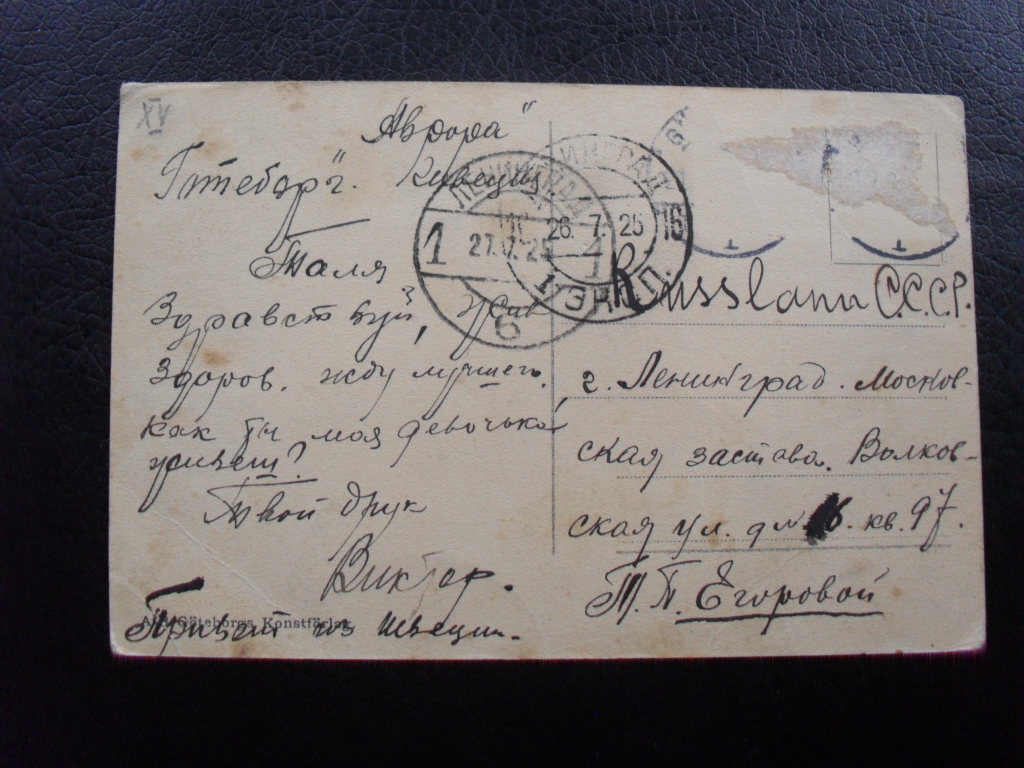 XV
"Аврора"
Гттеборг".
Таля
Здравствуй, жив
Здоров. жду лучшего.
Как ты моя девочька
живеш?
Твой друк
Виктор.
Привет из Швеции.
Göteborgs Konstförlag
ЛЕНИНГРАД
1 27.7.25 1
6
ИНГРАД
26.7.25 16
1
Russland С.С.С.Р.
г. Ленинград. Москов-
ская застава. Волков-
ская ул. д № 6. кв. 97.
Т. П. Егоровой